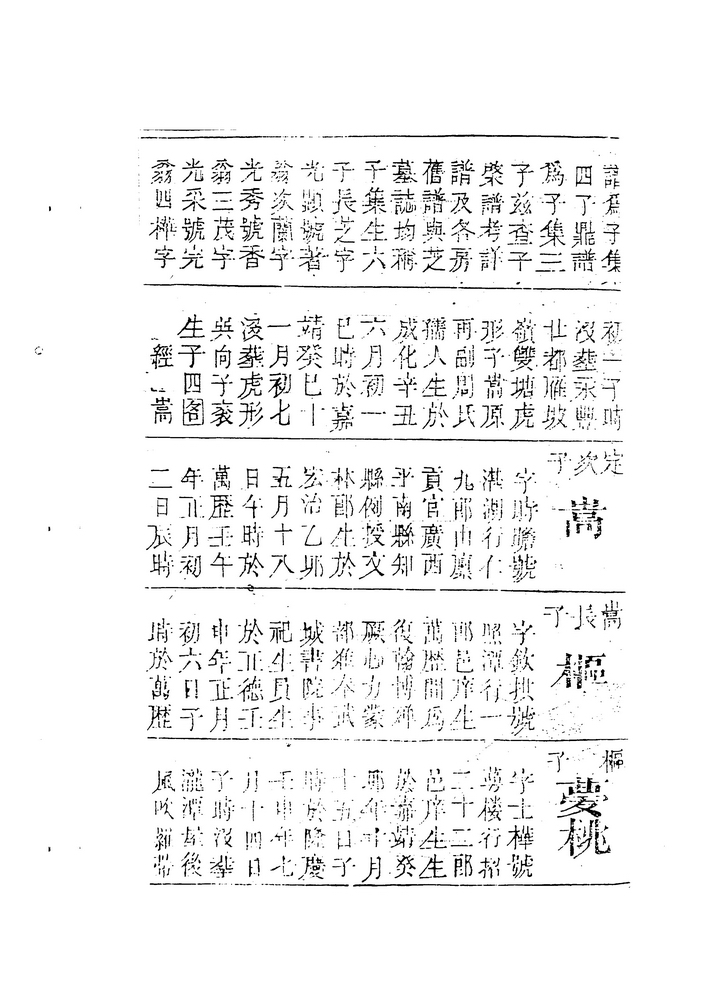 譜爲子集
四子鼎譜
爲子集三
子茲查子
榮譜考詳
譜及各房
舊譜與芝
墓誌均稱
子集生六
子長芝字
光顯號著
翁次蘭字
光秀號香
翁三茂字
光采號完
翁四樺字
初一子時
沒塟永豐
廿都雁坡
嶺雙塘虎
形子嵩原
再副周氏
孺人生於
成化辛丑
六月初一
巳時於嘉
靖癸巳十
一月初七
沒塟虎形
吳向子袤
生子四
經嵩
定次子
嵩
字時瞻號
湛湖行仁
九郎由廩
貢官廣西
平南縣知
縣例授文
林郎生於
宏治乙卯
五月十八
日午時於
萬歷壬午
年正月初
二日辰時
嵩長子
樞
字欽拱號
照潭行一
郎邑庠生
萬歷間爲
復翰博殫
厥心力蒙
都奉武
城書院事
祀生員生
於正德壬
申年正月
初六日子
時於萬歷
樞子
夢桃
字士樺號
夢樓行招
二十二郎
邑庠生生
於嘉靖癸
卯年十月
十五日子
時於隆慶
壬申年七
月十四日
子時沒塟
瀧潭屋後
風吹羅帶